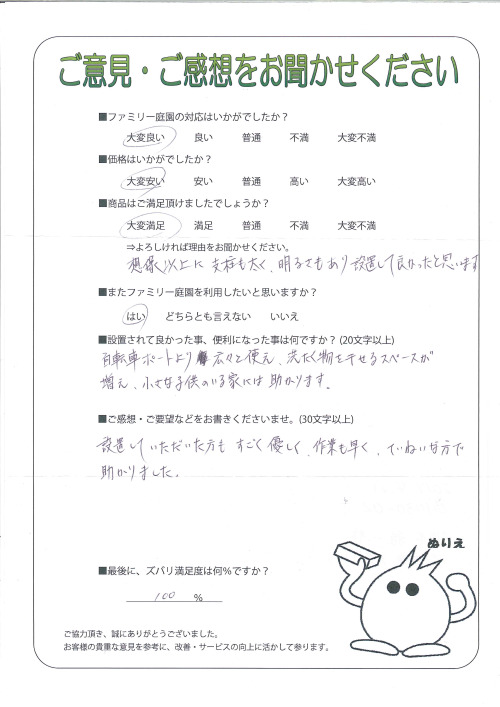 ご意見・ご感想をお聞かせください
■ファミリー庭園の対応はいかがでしたか？
大変良い 良い 普通 不満 大変不満
■価格はいかがでしたか？
大変安い 安い 普通 高い 大変高い
■商品はご満足頂けましたでしょうか？
大変満足 満足 普通 不満 大変不満
⇒よろしければ理由をお聞かせください。
想像以上に支柱も太く、明るさもあり設置して良かったと思います
■またファミリー庭園を利用したいと思いますか？
はい どちらとも言えない いいえ
■設置されて良かった事、便利になった事は何ですか？(20文字以上)
自転車ポートより広々と使え、洗たく物を干せるスペースが
増え、小さな子供のいる家には助かります。
■ご感想・ご要望などをお書きくださいませ。(30文字以上)
設置していただいた方もすごく優しく、作業も早く、ていねいな方で
助かりました。
ぬりえ
■最後に、ズバリ満足度は何％ですか？
100 ％
ご協力頂き、誠にありがとうございました。
お客様の貴重な意見を参考に、改善・サービスの向上に活かして参ります。